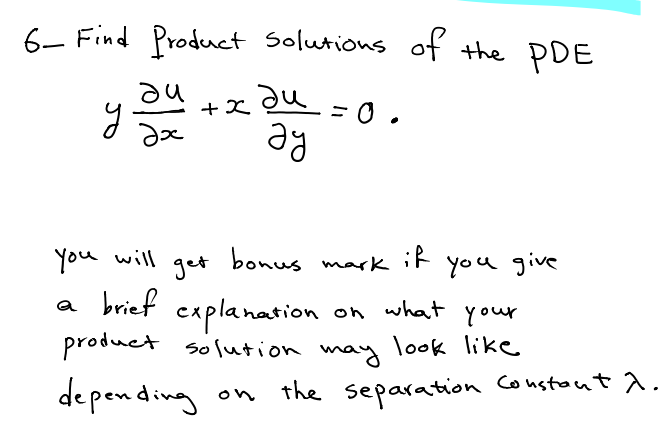 6- Find Product solutions of the PDE
y ∂u/∂x + x ∂u/∂y = 0 .
you will get bonus mark if you give
a brief explanation on what your
product solution may look like
depending on the separation constant λ.